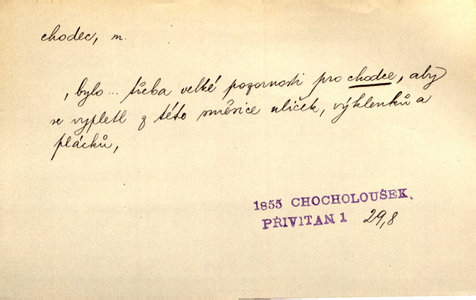 chodec, m.
, bylo... třeba velké pozornosti pro chodce, aby
se vypletl z této směsice uliček, výklenků a
plácků,
1855 CHOCHOLOUŠEK.
PŘIVITAN 1 29,8